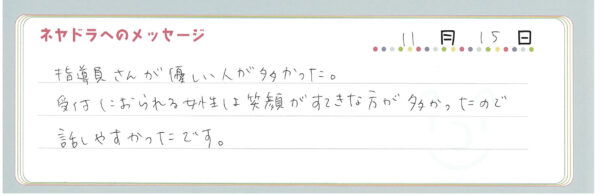 ネヤドラへのメッセージ
11月15日
指導員さんが優しい人が多かった。
受付におられる女性は笑顔がすてきな方が多かったので
話しやすかったです。